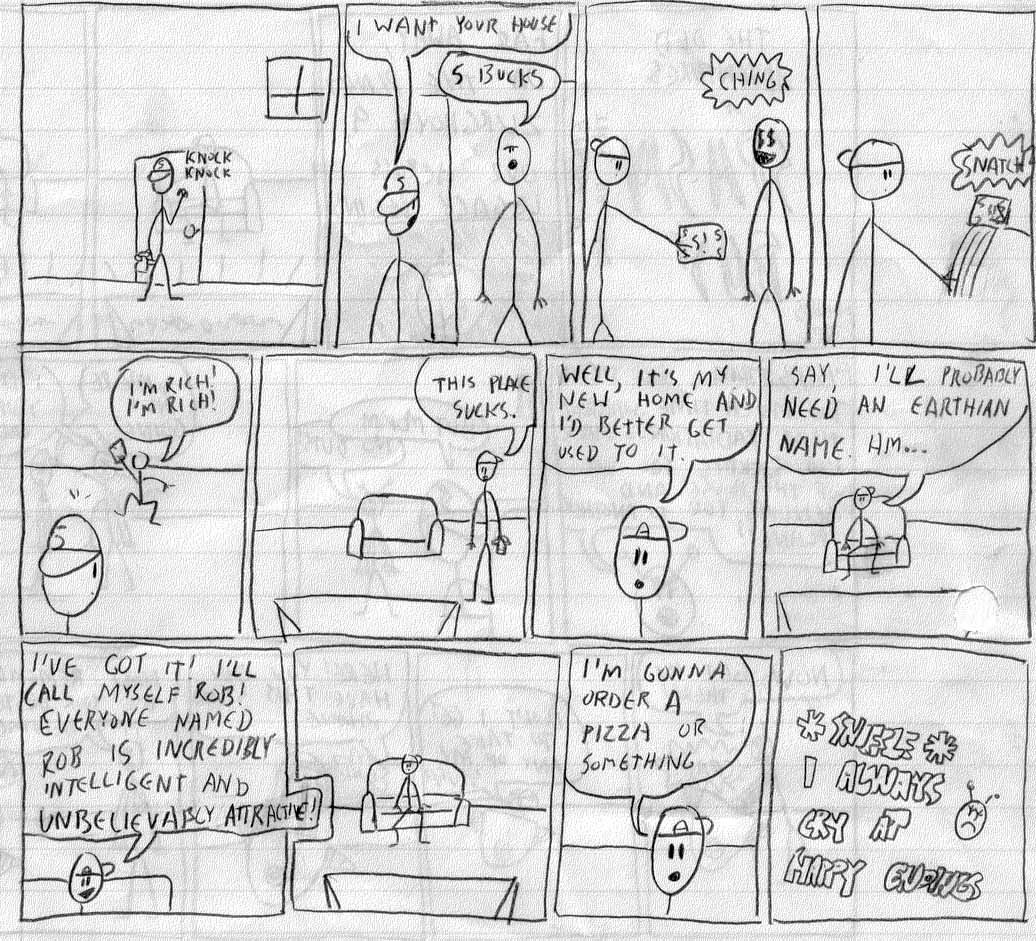 KNOCK
KNOCK
I WANT YOUR HOUSE
5 BUCKS
CHING
$$
S
S
$ $! $
SNATCH
I'M RICH!
I'M RICH!
S
THIS PLACE
SUCKS.
WELL, IT'S MY
NEW HOME AND
I'D BETTER GET
USED TO IT.
SAY, I'LL PROBABLY
NEED AN EARTHIAN
NAME. HM...
I'VE GOT IT! I'LL
CALL MYSELF ROB!
EVERYONE NAMED
ROB IS INCREDIBLY
INTELLIGENT AND
UNBELIEVABLY ATTRACTIVE!
I'M GONNA
ORDER A
PIZZA OR
SOMETHING
*SNIFFLE*
I ALWAYS
CRY AT
HAPPY ENDINGS